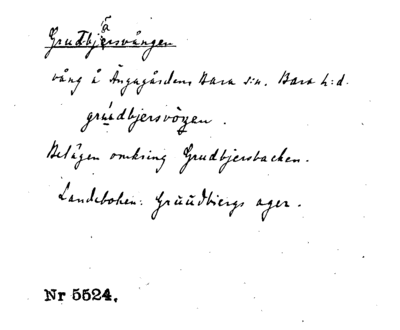 Grudbjärsvången
vång å Ängagården Bara s:n. Bara h:d.
grúudbjersvöŋen.
Belägen omkring Grudbjersbacken.
Landeboken: Gruudbiergs ager.
Nr 5524.